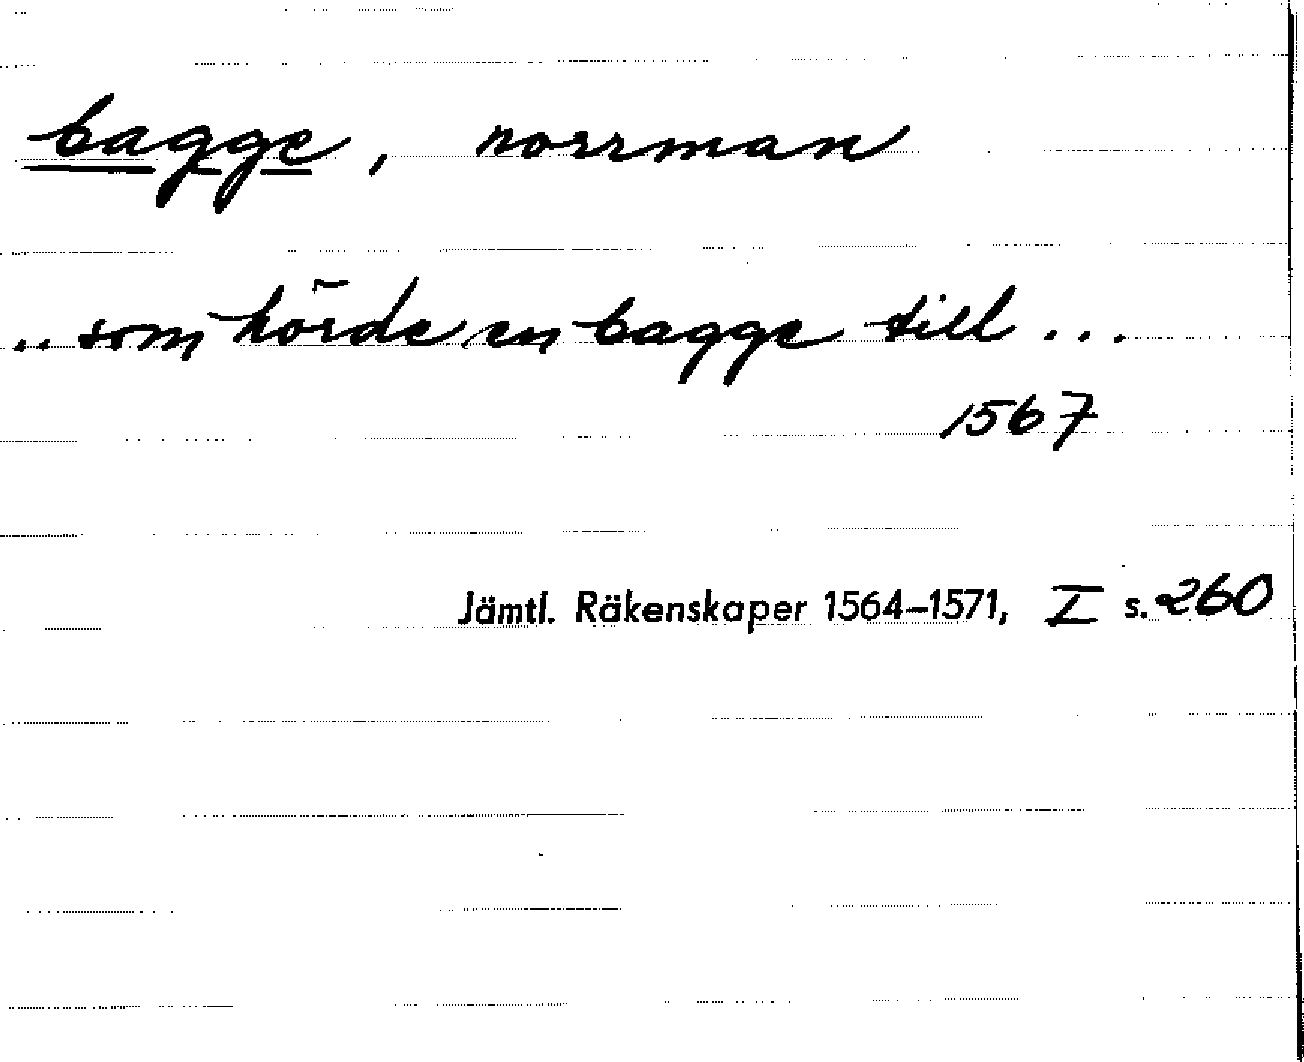 bagge, norrman
.. som hörde en bagge till ...
1567
Jämtl. Räkenskaper 1564–1571, I s. 260